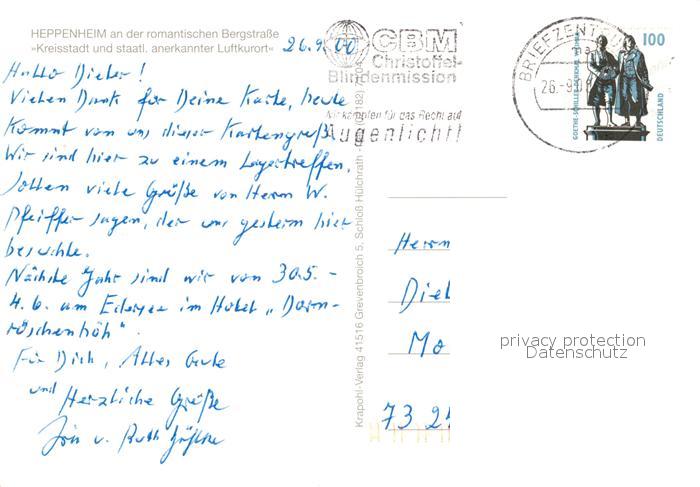 HEPPENHEIM an der romantischen Bergstraße
»Kreisstadt und staatl. anerkannter Luftkurort«
26.9.00
Hallo Dieter!
Vielen Dank für Deine Karte, heute
kommt von uns dieser Kartengruß.
Wir sind hier zu einem Lagertreffen.
Sollen viele Grüße von Herrn W.
Pfeiffer sagen, der uns gestern hier
besuchte.
Nächste Jahr sind wir von 30.5. -
4.6. am Edersee im Hotel „Dorn-
röschenhöh".
Für Dich, Alles Gute
und Herzliche Grüße
u. Ruth
CBM
Christoffel-
Blindenmission
Wir kämpfen für das Recht auf
Augenlicht!
BRIEFZENTRUM
26.-9.00
100
GOETHE-SCHILLER-DENKMAL WEIMAR
DEUTSCHLAND
Krapohl-Verlag 41516 Grevenbroich 5, Schloß Hülchrath
Herrn
Diet
Mo
73 2
privacy protection
Datenschutz